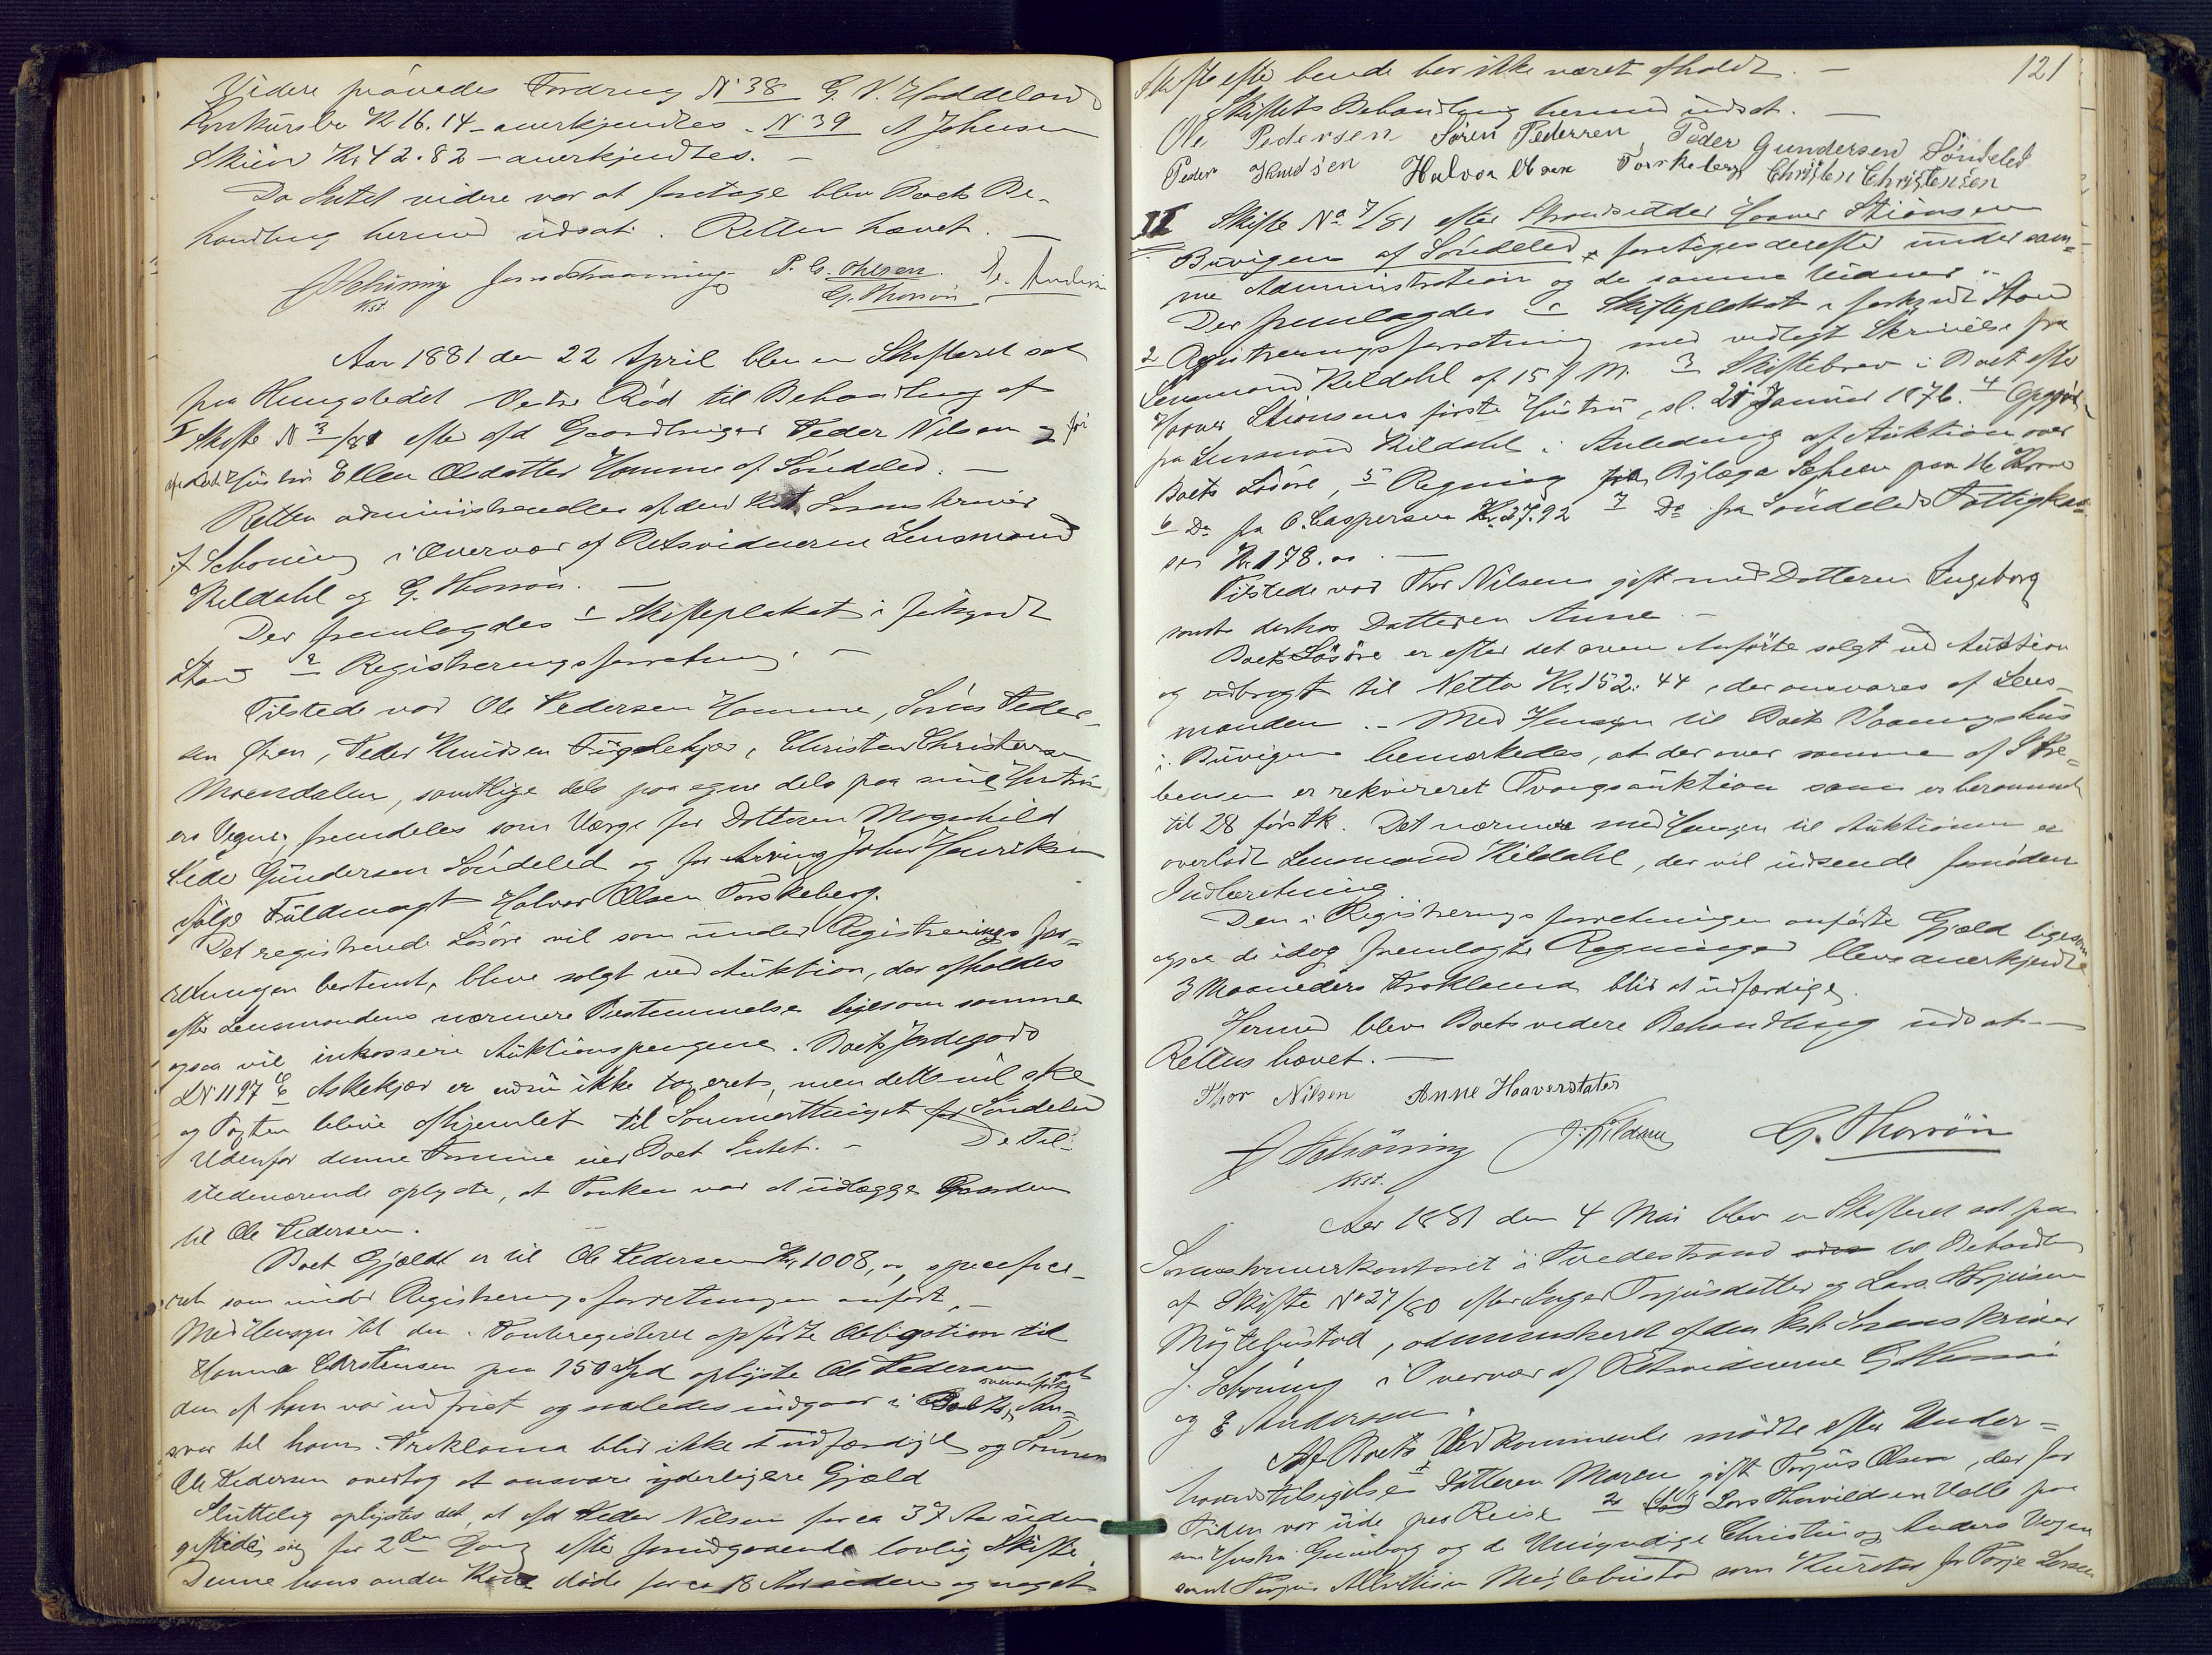 Videre prøvedes Fordring No 38 G. V. Haddeland
Kr 16.14 - anerkjendtes. N 39 A Johnsen
Skien Kr 42.82 - anerkjendtes. -
Da Intet videre var at foretage blev Boets Be-
handling hermed udsat. Retten hævet. -
JSchöning P. G. Ohlsen. E. Andersen
Kst. G. Thorsön
Aar 1881 den 22 April blev en Skifteret sat
paa Thingstedet Vestre Röd til Behandling af
I Skifte No 3/81 efter afd Gaardbruger Peder Nilsen og før
afdøde Hustru Ellen Olsdatter Hamme af Söndeled. -
Retten administreredes af den Kst Sorenskriver
J Schöning i Overvær af Retsvidnerne Lensmand
Kildahl og G. Thorsön. -
Der fremlagdes 1 Skifteplakat i forkyndt
Stand 2 Registreringsforretning. -
Tilstede var Ole Pedersen Hamme, Sörin Peder-
sen , Peder Knudsen Fuglekjær, Christen Christensen
Moendalen, samtlige dels paa egne dels paa sine Hustru-
ers Vegne, fremdeles som Værge for Datteren Magnhild
Peder Gundersen Söndeled og for Arving John Henriksen
ifølge Fuldmagt Halvor Olsen Torskeberg.
Det registrerede Lösöre vil som under Registrerings for-
retningen bestemt, blive solgt ved Auktion, der afholdes
efter Lensmandens nærmere Bestemmelse ligesom samme
ogsaa vil inkassere Auktionspengene. Boets Jordegods
LN 1197 E Askekjær er endnu ikke taxeret, men dette vil ske
og Taxten blive afhjemlet til Sommerthinget for Söndeled
Udenfor denne Formue eier Boet Intet. - De Til-
stedeværende oplyste, at Tanken var at udlægge Gaarden
til Ole Pedersen.
Boets Gjæld er til Ole Pedersen Kr 1008,00, specifice-
ret som under Registreringsforretningen anført, -
Med Hensyn til den i Panteregisteret opførte Obligation til
Hamme Christensen paa 150 Spd oplyste Ole Pedersen, at
den af ham var indfriet og saaledes indgaar i Boets ovenanførte An-
svar til ham. Proklama blir ikke at udfærdige og Sönnen
Ole Pedersen overtog at ansvare yderligere Gjæld
Sluttelig oplystes det, at afd Peder Nilsen for ca 37 Aar siden
giftede sig for 2den Gang efter forudgaaende lovlig Skifte.
Denne hans anden Kone døde for ca 18 Aar siden og noget
121
Skifte efter hende har ikke været afholdt. -
Skiftets Behandling hermed udsat. -
Ole Pedersen Sören Pedersen Peder Gundersen Söndeled
Peder Knudsen Halvor Olsen Torskeberg Christen Christensen
II Skifte No 7/81 efter Strandsidder Haaver Stiansen
Buvigen af Söndeled, foretoges derefter under sam-
me Administration og de samme Vidner. -
Der fremlagdes 1 Skifteplakat i forkyndt Stand
2 Registreringsforretning med vedlagt Skrivelse fra
Lensmand Kildahl af 15 f M. 3 Skiftebrev i Boet efter
Haaver Stiansens første Hustru, sl. 21 Januar 1876. 4 Opgjør
fra Lensmand Kildahl i Anledning af Auktion over
Boets Lösöre, 5 Regning fra Distriktslæge paa 16 Kroner
6 Do fra C. Caspersen Kr 37.92 7 Do fra Söndeleds Fattigkas-
se Kr. 178.00. -
Tilstede var Thor Nilsen gift med Datteren Ingeborg
samt derhos Datteren Anne. -
Boets Lösöre er efter det oven Anførte solgt ved Auktion
og udbragt til Netto Kr. 152.44, der ansvares af Lens-
manden. - Med Hensyn til Boets Vaaningshus
i Buvigen bemærkedes, at der over samme af
er rekvireret Tvangsauktion som er berammet
til 28 førstk. Det nærmere med Hensyn til Auktionen er
overladt Lensmand Kildahl, der vil indsende fornöden
Indberetning.
Den i Registreringsforretningen anførte Gjæld ligesom
ogsaa de idag fremlagte Regninger blev anerkjendte
3 Maaneders Proklama blir at udfærdige.
Hermed blev Boets videre Behandling udsat. -
Retten hævet. -
Thor Nilsen Anne Haaversdater
J Schöning J. Kildahl G. Thorsön
Kst.
Aar 1881 den 4 Mai blev en Skifteret sat paa
Sorenskriverkontoret i Tvedestrand til Behandling
af Skifte No 27/80 efter Inger Torjusdatter og Lars Torjusen
Möglebustad, administreret af den Kst Sorenskriver
J. Schöning i Overvær af Retsvidnerne G Thorsön
og E Andersen.
Af Boets Vedkommende mödte efter Under-
haandstilsigelse 1 Datteren Maren gift Torjus Olsen, der for
Tiden var ude paa Reise 2 Lars Thorvildsen Valle paa
sin Hustru Gunborg og de Umyndige Christen og Anders Vegne
samt Torjus Möglebustad som Kurator for Torje Larsen